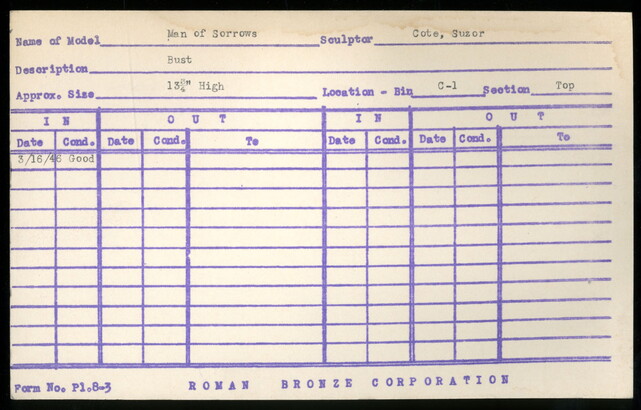 Name of Model Man of Sorrows Sculptor Cote, Suzor
Description Bust
Approx. Size 13¾" High Location - Bin C-1 Section Top
I N O U T I N O U T
Date Cond. Date Cond. To Date Cond. Date Cond. To
3/16/46 Good
Form No. Pl.8-3 ROMAN BRONZE CORPORATION